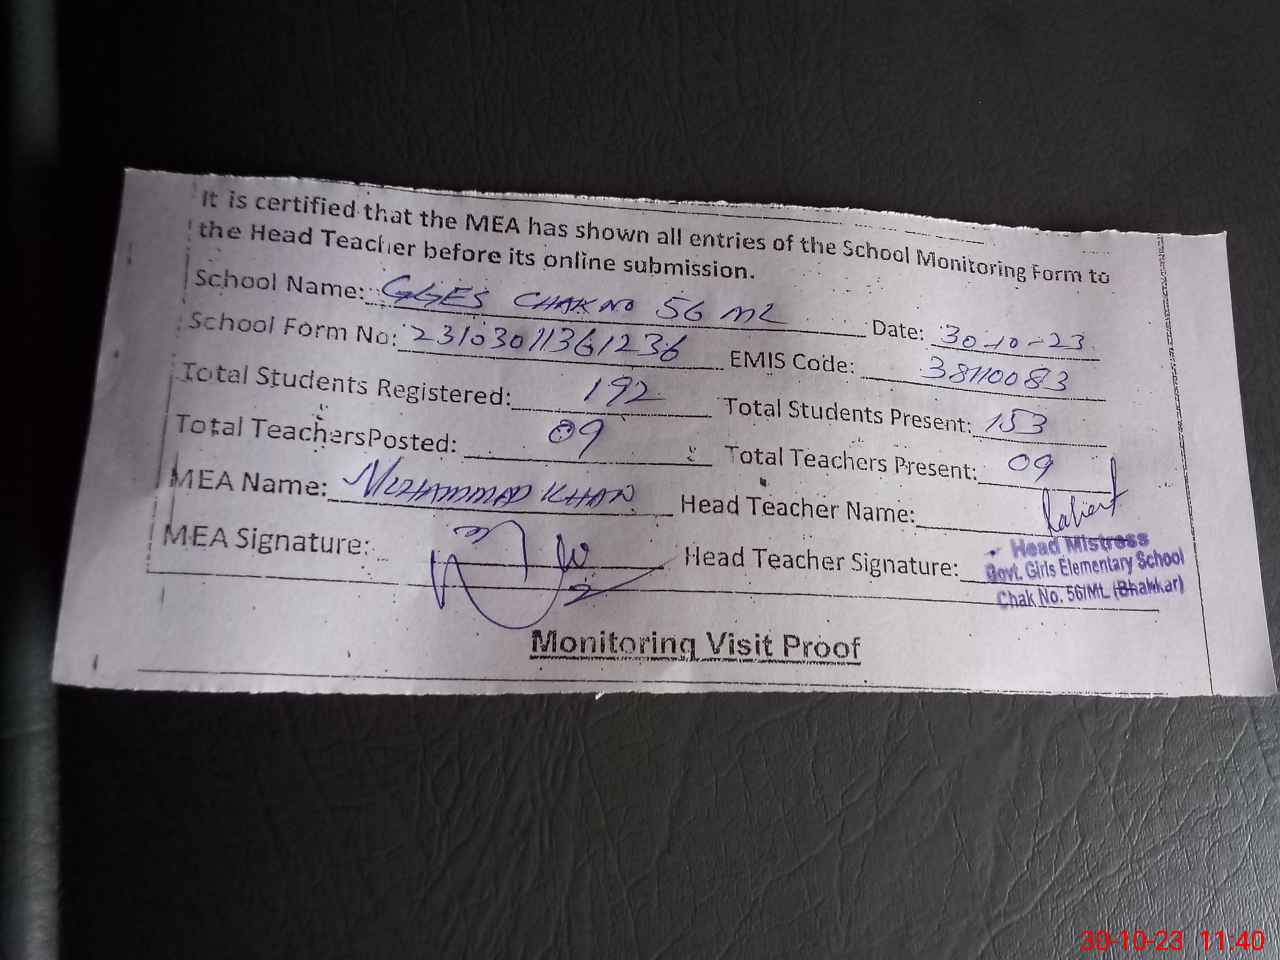 It is certified that the MEA has shown all entries of the School Monitoring Form to
the Head Teacher before its online submission.
School Name: GGES CHAK NO 56 ML Date: 30-10-23
School Form No: 23103011361236 EMIS Code: 38110083
Total Students Registered: 192 Total Students Present: 153
Total TeachersPosted: 09 Total Teachers Present: 09
MEA Name: MUHAMMAD KHAN Head Teacher Name:
MEA Signature: Head Teacher Signature:
Head Mistress
Govt. Girls Elementary School
Chak No. 56/ML (Bhakkar)
Monitoring Visit Proof
30-10-23 11:40